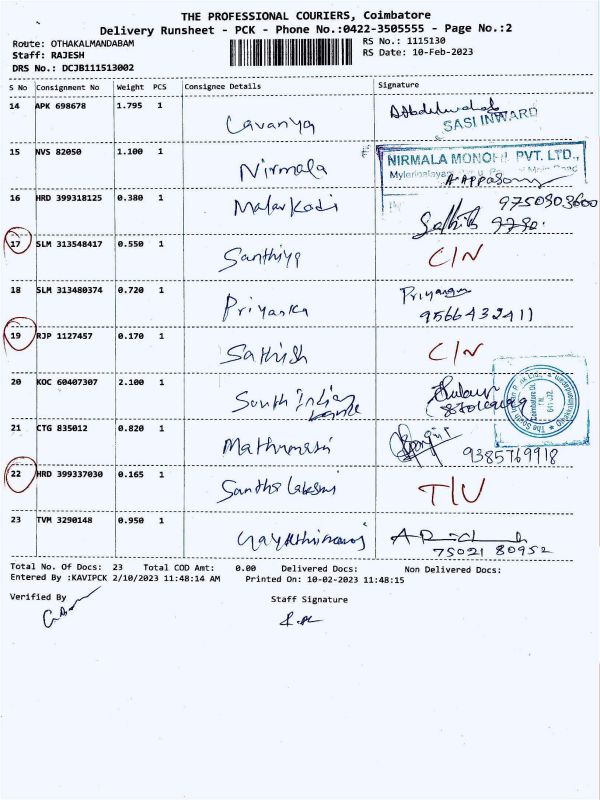 THE PROFESSIONAL COURIERS, Coimbatore
Delivery Runsheet - PCK - Phone No.:0422-3505555 - Page No.:2
Route: OTHAKALMANDABAM
RS No.: 1115130
Staff: RAJESH
RS Date: 10-Feb-2023
DRS No.: DCJB111513002
S No Consignment No Weight PCS Consignee Details Signature
14 APK 698678 1.795 1 Lavanya
SASI INWARD
15 NVS 82050 1.100 1 Nirmala
NIRMALA MONOFIL PVT. LTD.,
16 HRD 399318125 0.380 1 Malarkodi
9750903600
17 SLM 313548417 0.550 1 Santhiya C/N
18 SLM 313480374 0.720 1 Priyanka
9566432411
19 RJP 1127457 0.170 1 Sathish C/N
20 KOC 60407307 2.100 1 South Indian
21 CTG 835012 0.820 1
9385769918
22 HRD 399337030 0.165 1 T/U
23 TVM 3290148 0.950 1
75021 80952
Total No. Of Docs: 23 Total COD Amt: 0.00 Delivered Docs: Non Delivered Docs:
Entered By :KAVIPCK 2/10/2023 11:48:14 AM Printed On: 10-02-2023 11:48:15
Verified By Staff Signature